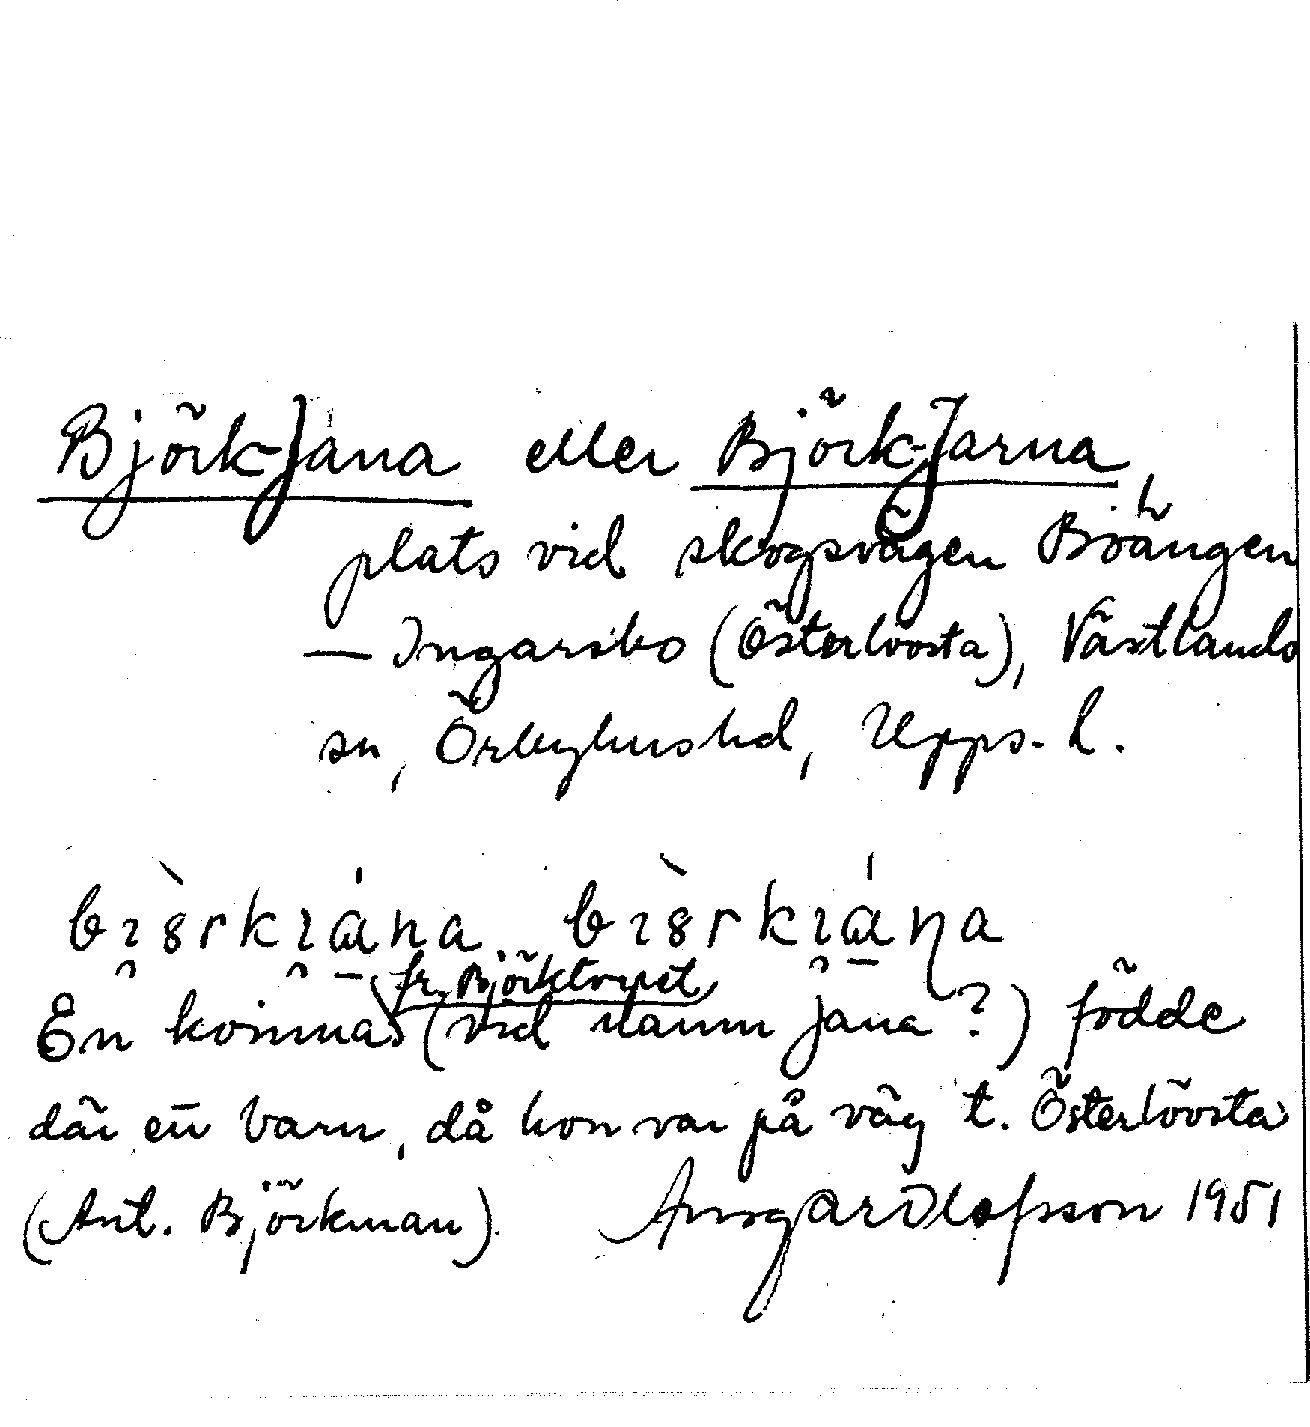 Björk-Jana eller Björk-Jarna,
plats vid skogsvägen Boängen
— Ingarsbo (Österlövsta), Västlands
sn, Örbyhus hd, Upps. l.
En kvinna fr. Björktorpet (vid namn Jana?) födde
där ett barn, då hon var på väg t. Österlövsta
(Ant. Björkman). Ansgar Olofsson 1951